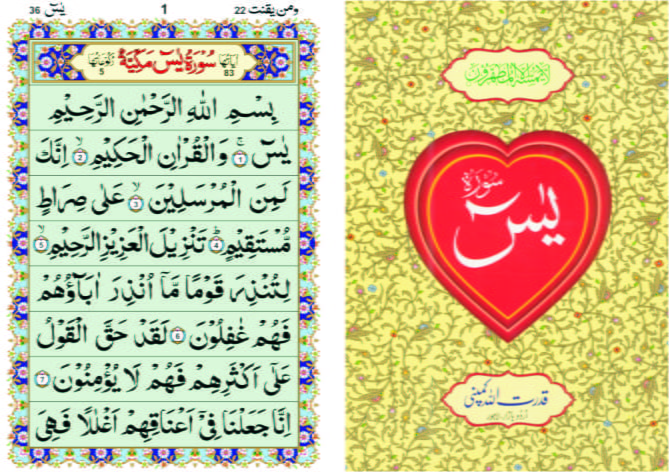 ومن یقنت 22 1 یٰسٓ 36
اٰیاتہا 83 سُوْرَةُ یٰسٓ مَكِّيَّةٌ رکوعاتہا 5
بِسْمِ اللّٰهِ الرَّحْمٰنِ الرَّحِيْمِ
يٰسٓ ۚ ١ وَالْقُرْاٰنِ الْحَكِيْمِ ۙ ٢ اِنَّكَ
لَمِنَ الْمُرْسَلِيْنَ ۙ ٣ عَلٰى صِرَاطٍ
مُّسْتَقِيْمٍ ؕ ٤ تَنْزِيْلَ الْعَزِيْزِ الرَّحِيْمِ ۙ ٥
لِتُنْذِرَ قَوْمًا مَّاۤ اُنْذِرَ اٰبَآؤُهُمْ
فَهُمْ غٰفِلُوْنَ ٦ لَقَدْ حَقَّ الْقَوْلُ
عَلٰٓى اَكْثَرِهِمْ فَهُمْ لَا يُؤْمِنُوْنَ ٧
اِنَّا جَعَلْنَا فِىْۤ اَعْنَاقِهِمْ اَغْلٰلًا فَهِىَ
لَا يَمَسُّهٗۤ اِلَّا الْمُطَهَّرُوْنَ
سورة
يٰسٓ
قدرت اللہ کمپنی
اردو بازار، لاہور